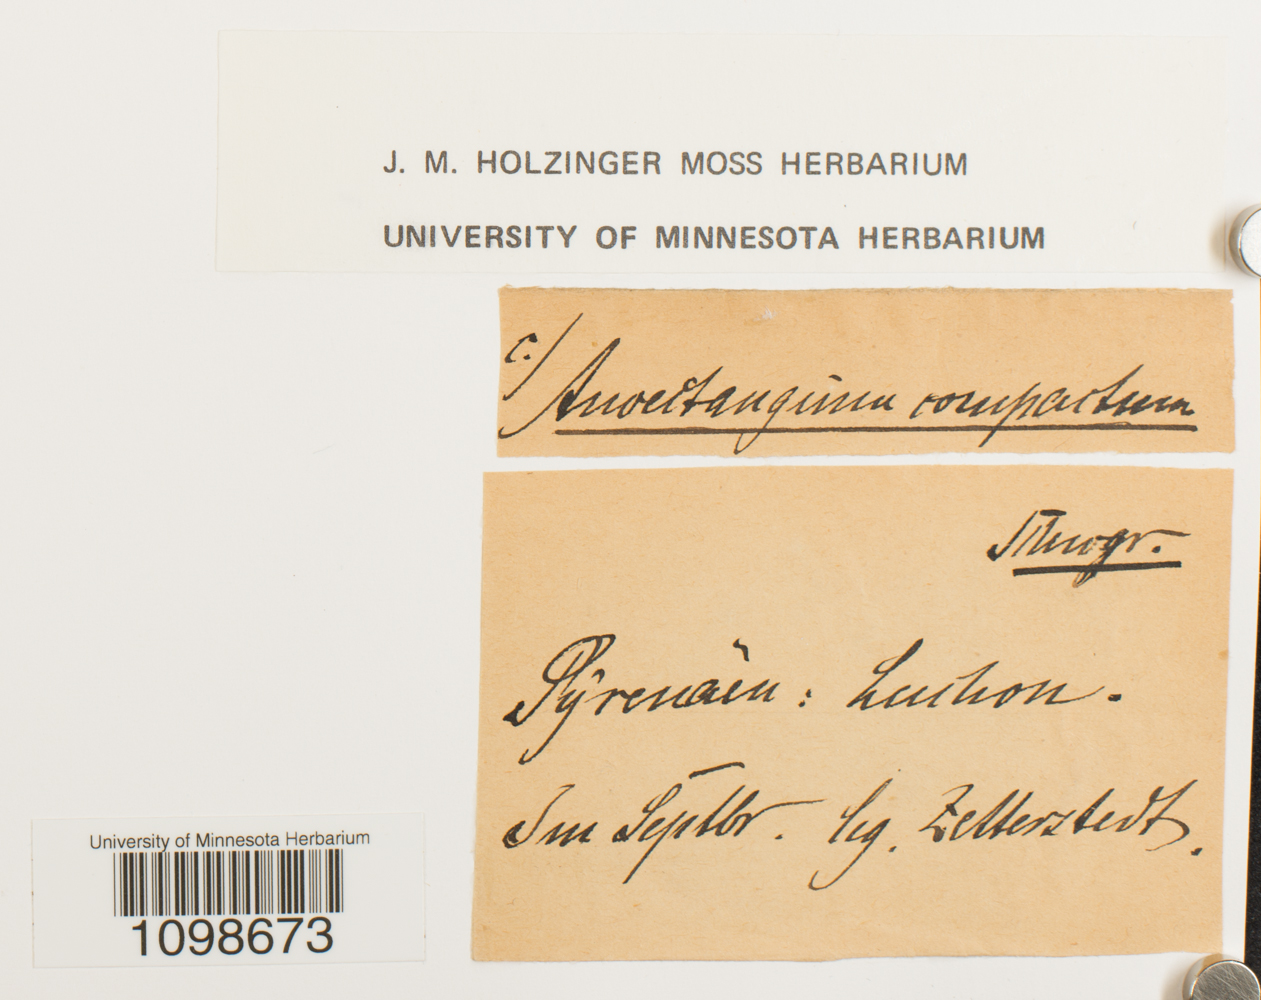 J. M. HOLZINGER MOSS HERBARIUM
UNIVERSITY OF MINNESOTA HERBARIUM
c./ Anoectangium compactum
Schwgr.
Pÿrenäen: Luchon.
Im Septbr. lg. Zetterstedt.
University of Minnesota Herbarium
1098673